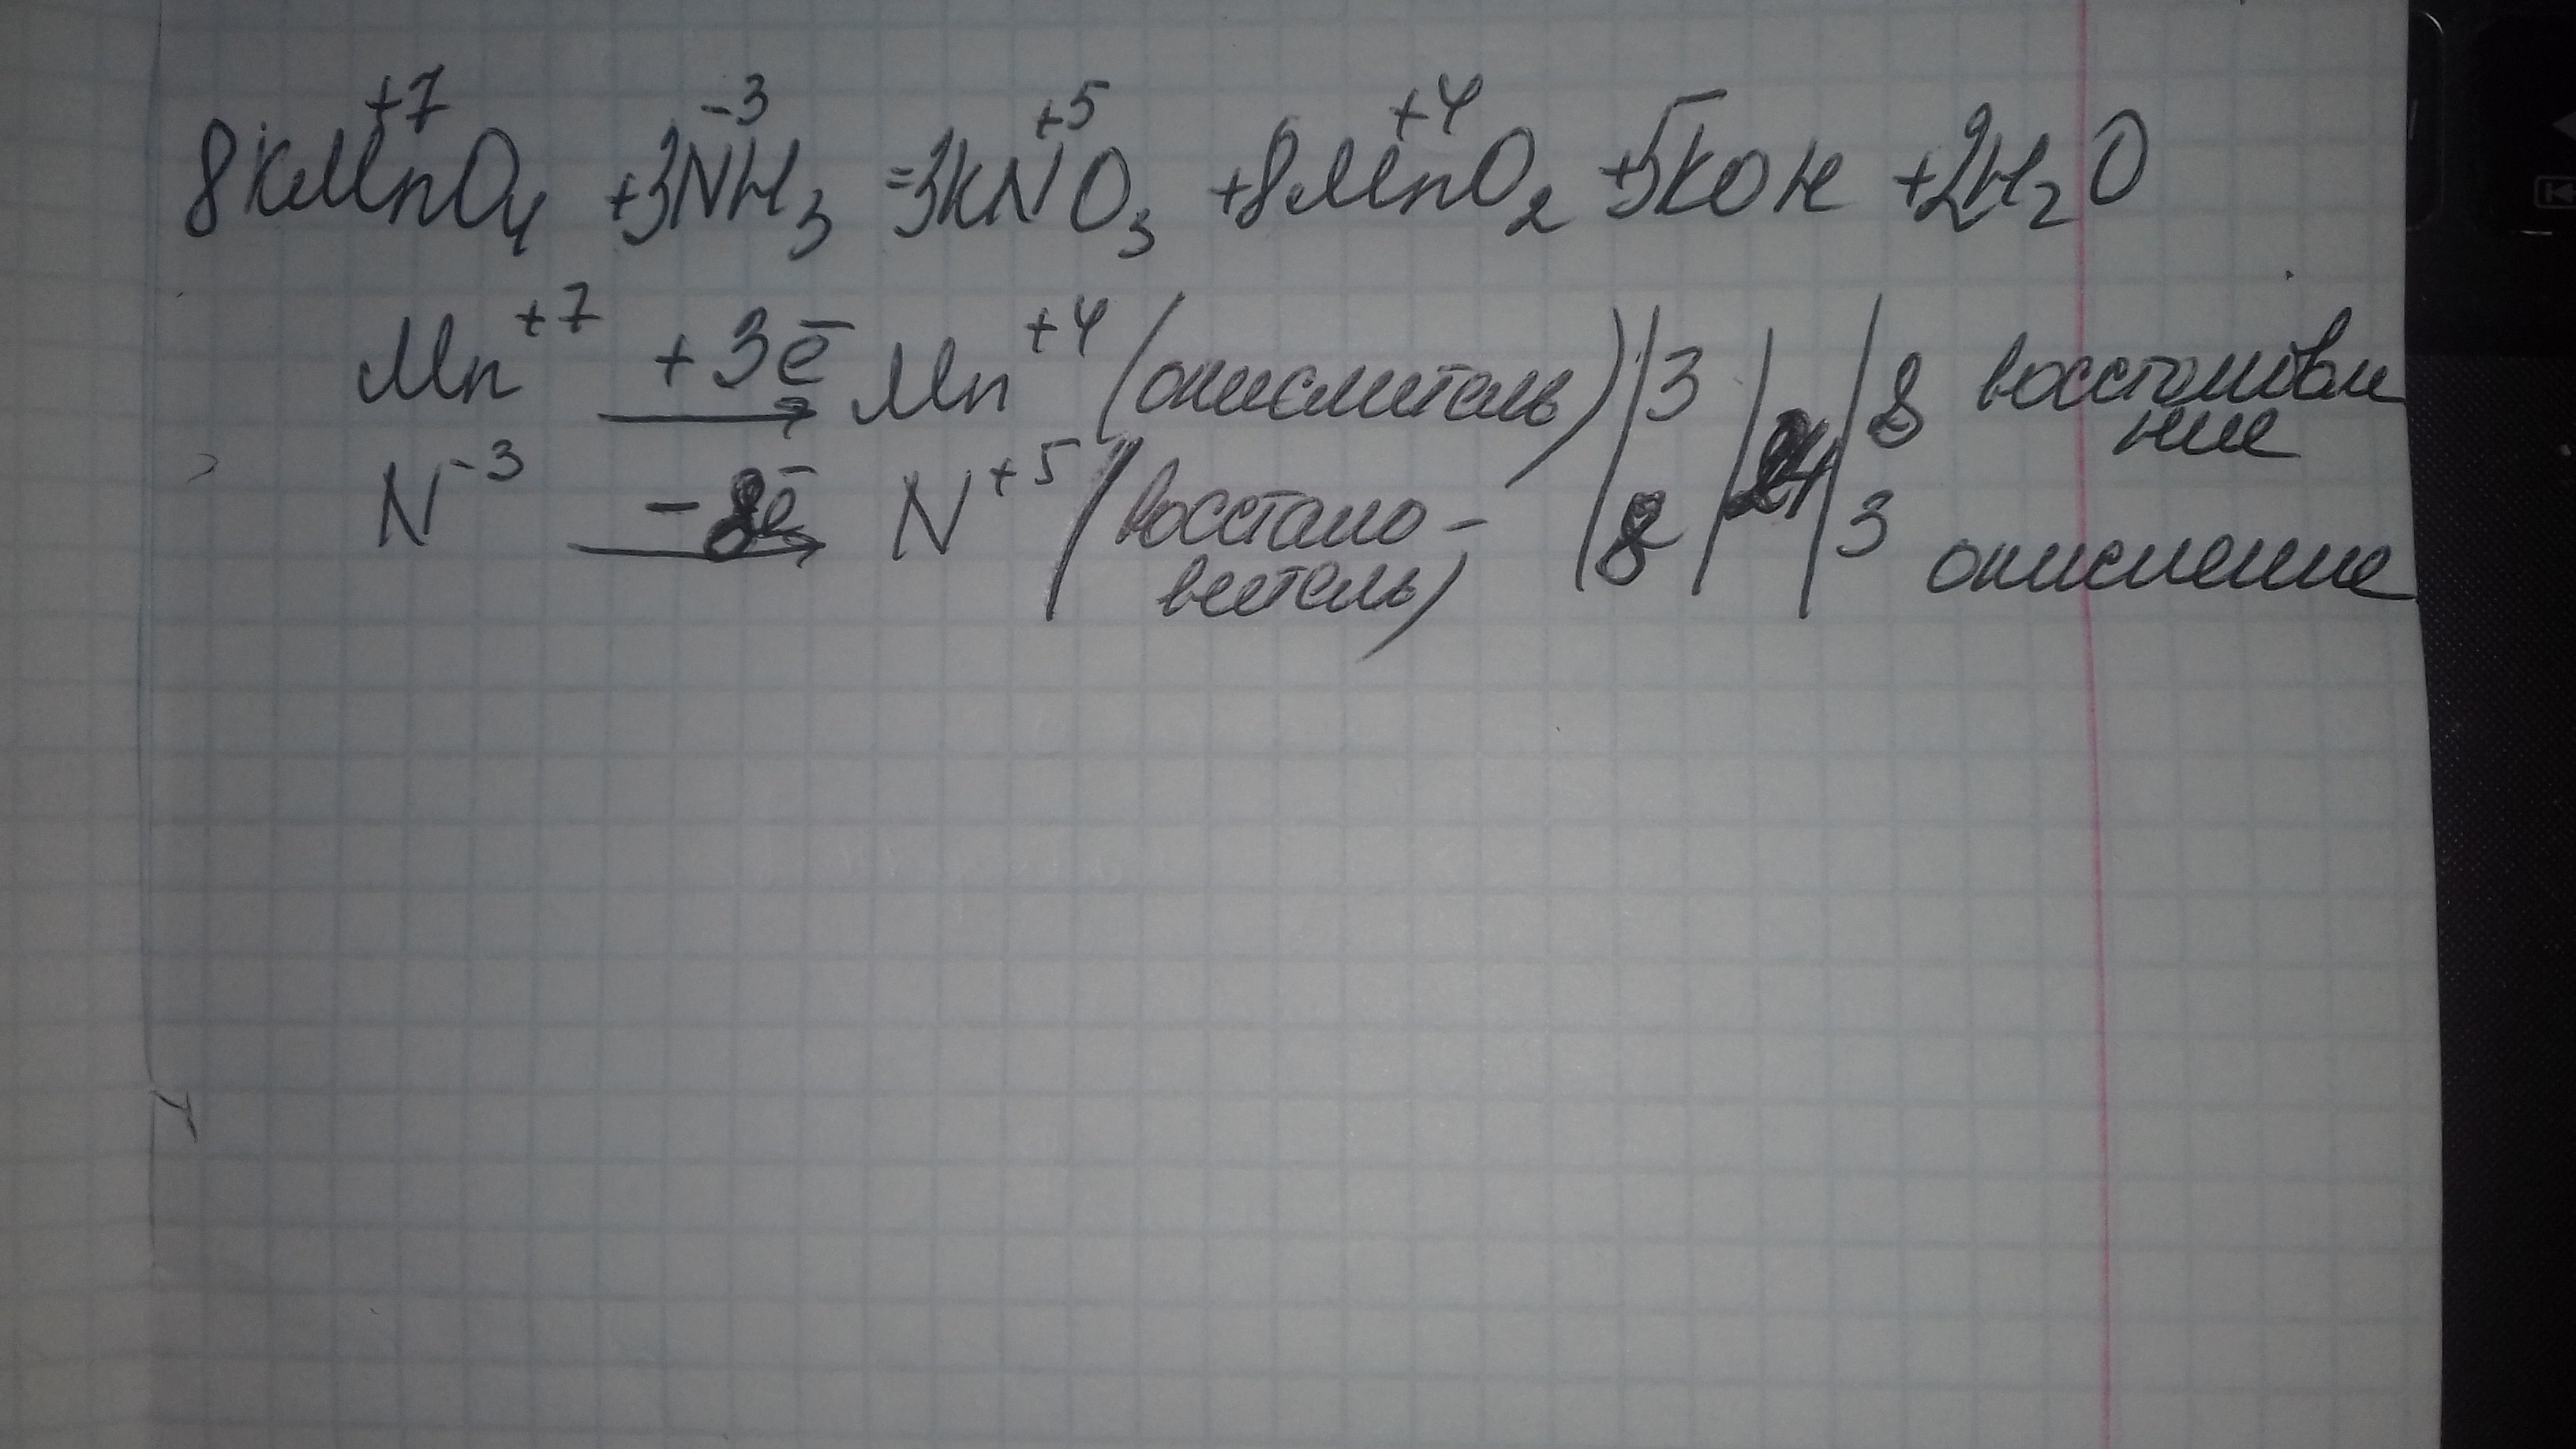 8KMn⁺⁷O₄ + 3N⁻³H₃ = 3KN⁺⁵O₃ + 8Mn⁺⁴O₂ + 5KOH + 2H₂O
Mn⁺⁷ +3ē → Mn⁺⁴ (окислитель) | 3 | 24 | 8 восстановление
N⁻³ -8ē → N⁺⁵ (восстано-
витель) | 8 | | 3 окисление